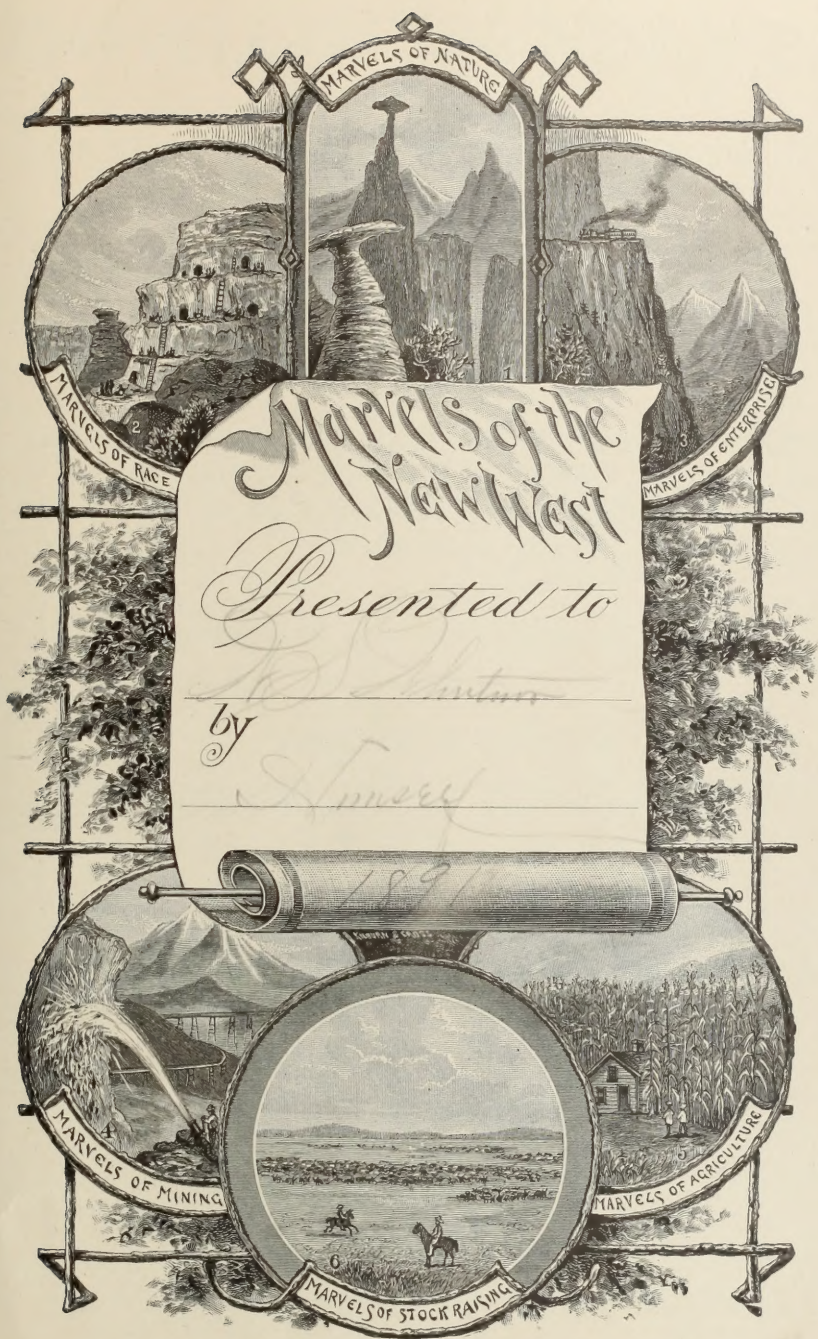 MARVELS OF NATURE
MARVELS OF RACE
2
1
3
MARVELS OF ENTERPRISE
Marvels of the
New West
Presented to
by
1891
MARVELS OF MINING
4
MARVELS OF AGRICULTURE
5
6
MARVELS OF STOCK RAISING